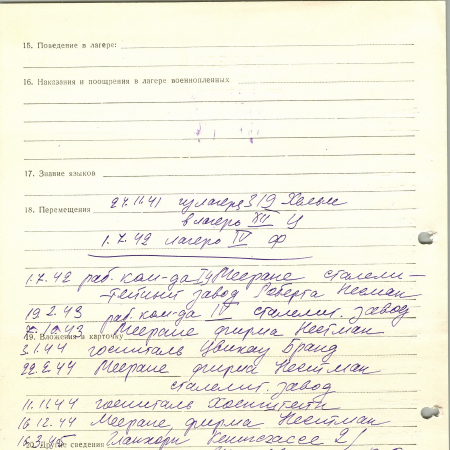 15. Поведение в лагере:
16. Наказания и поощрения в лагере военнопленных
17. Знание языков
18. Перемещения 27.11.41 из лагеря 319 Хелым
в лагерь XII Ц
1.7.42 лагерь IV Ф
1.7.42 раб. ком-да Меeране сталели-
тейный завод Роберта
19.2.43 раб. ком-да IV сталелит. завод
43 Меeране фирма Нестман
19. Вложения в карточку
3.1.44 госпиталь Цвикау Бранд
22.2.44 Меeране фирма Нестман
сталелит. завод
11.11.44 госпиталь Хоенштейн
16.12.44 Меeране, фирма Нестман
16.3.45
20. Другие сведения